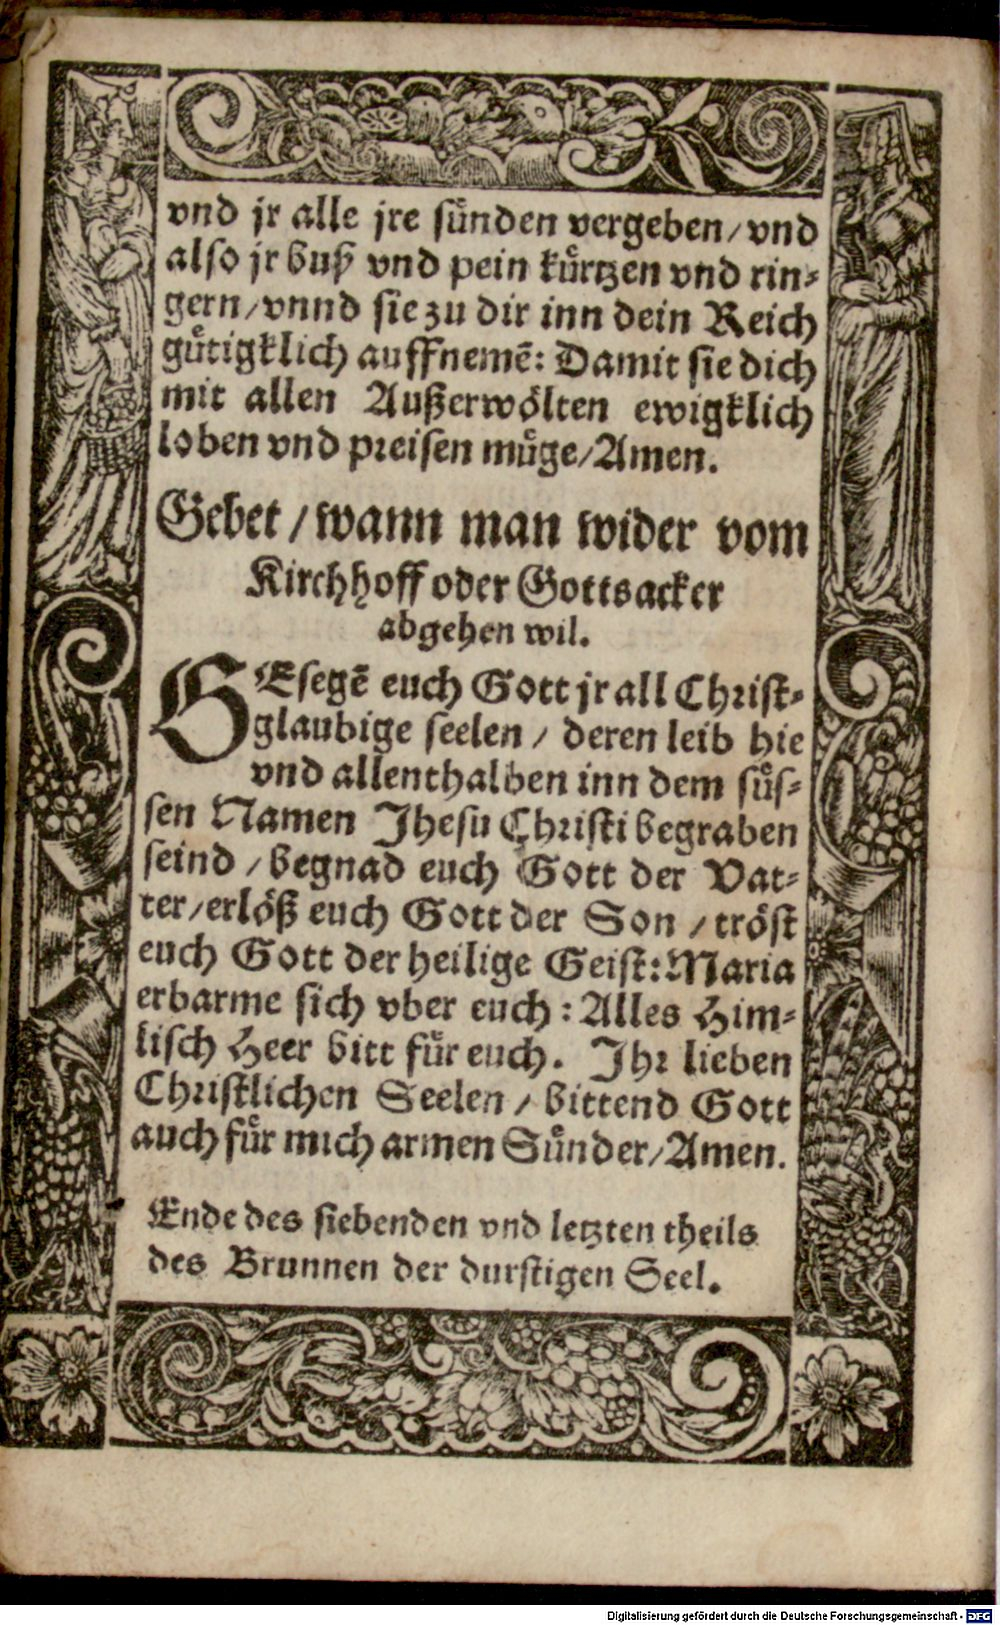 vnd jr alle jre sünden vergeben/ vnd
also jr buß vnd pein kürtzen vnd rin-
gern/ vnnd sie zu dir inn dein Reich
gütigklich auffnemẽ: Damit sie dich
mit allen Außerwölten ewigklich
loben vnd preisen müge/ Amen.
Gebet/ wann man wider vom
Kirchhoff oder Gottsacker
abgehen wil.
GEsegẽ euch Gott jr all Christ-
glaubige seelen/ deren leib hie
vnd allenthalben inn dem süs-
sen Namen Jhesu Christi begraben
seind/ begnad euch Gott der Vat-
ter/ erlöß euch Gott der Son/ tröst
euch Gott der heilige Geist: Maria
erbarme sich vber euch: Alles Him-
lisch Heer bitt für euch. Jhr lieben
Christlichen Seelen/ bittend Gott
auch für mich armen Sünder/ Amen.
Ende des siebenden vnd letzten theils
des Brunnen der durstigen Seel.
Digitalisierung gefördert durch die Deutsche Forschungsgemeinschaft - DFG